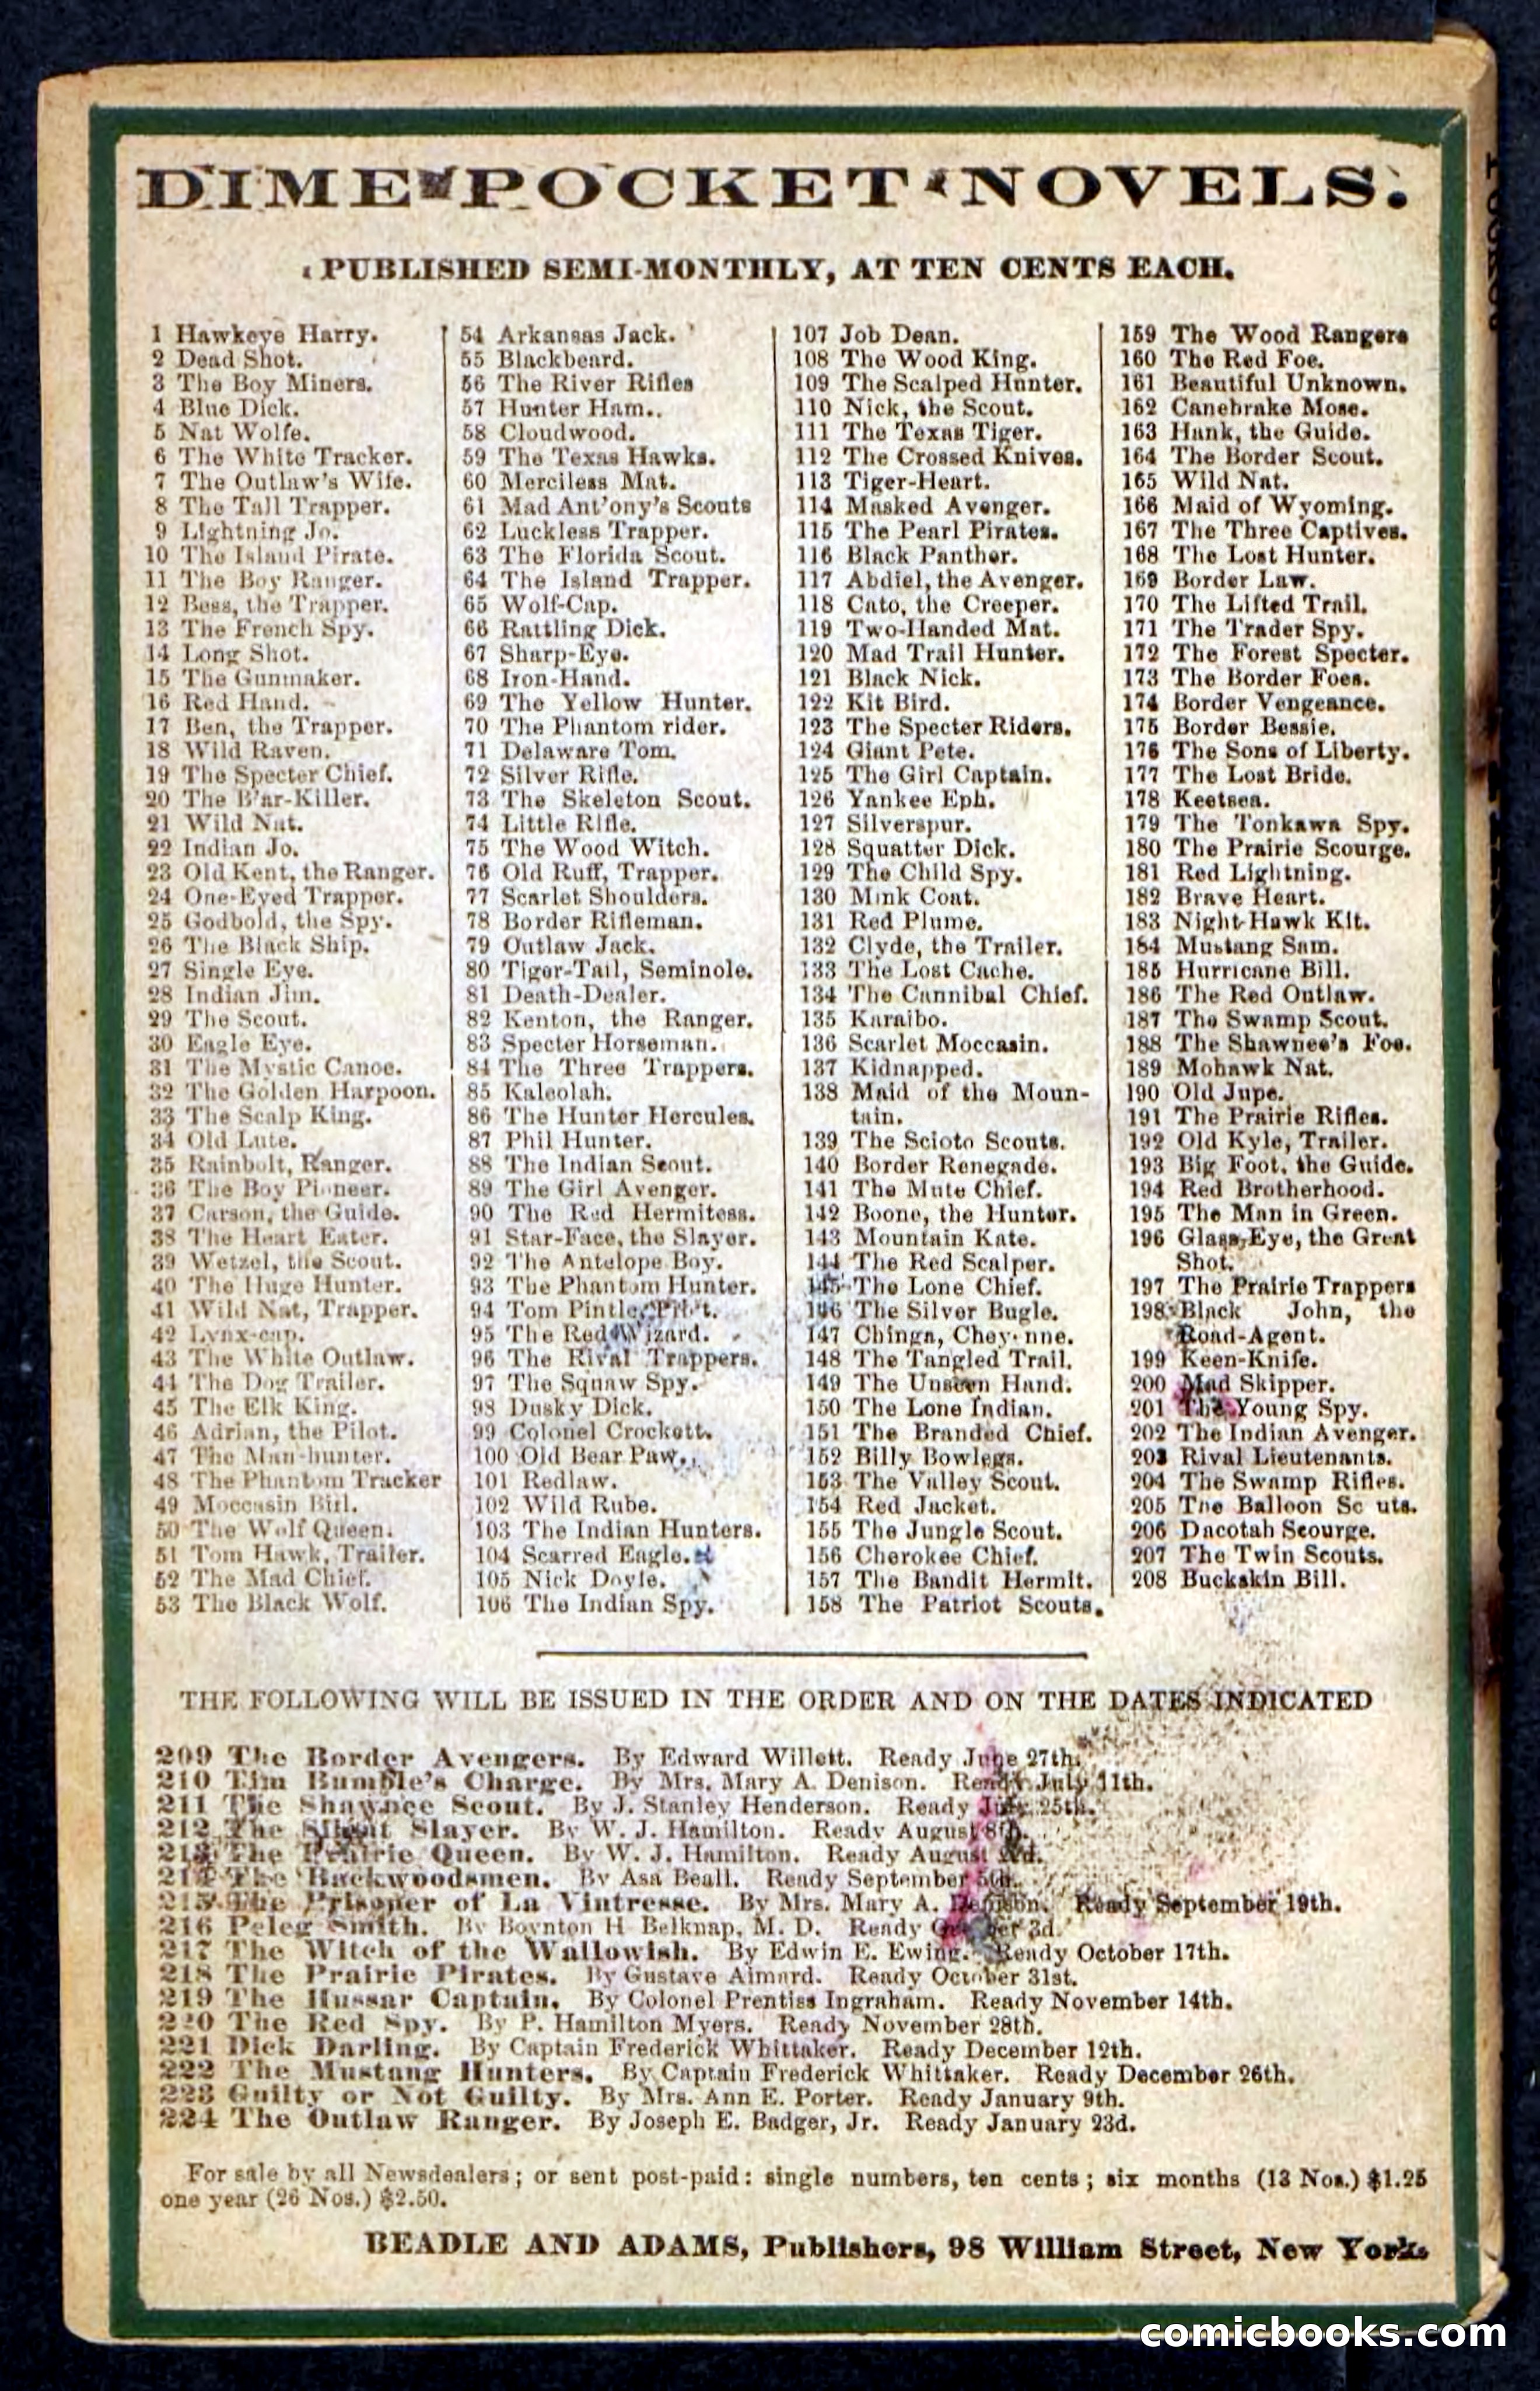 DIME POCKET NOVELS.
PUBLISHED SEMI-MONTHLY, AT TEN CENTS EACH.
1 Hawkeye Harry.
2 Dead Shot.
3 The Boy Miners.
4 Blue Dick.
5 Nat Wolfe.
6 The White Tracker.
7 The Outlaw's Wife.
8 The Tall Trapper.
9 Lightning Jo.
10 The Island Pirate.
11 The Boy Ranger.
12 Bess, the Trapper.
13 The French Spy.
14 Long Shot.
15 The Gunmaker.
16 Red Hand.
17 Ben, the Trapper.
18 Wild Raven.
19 The Specter Chief.
20 The B'ar-Killer.
21 Wild Nat.
22 Indian Jo.
23 Old Kent, the Ranger.
24 One-Eyed Trapper.
25 Godbold, the Spy.
26 The Black Ship.
27 Single Eye.
28 Indian Jim.
29 The Scout.
30 Eagle Eye.
31 The Mystic Canoe.
32 The Golden Harpoon.
33 The Scalp King.
34 Old Lute.
35 Rainbolt, Ranger.
36 The Boy Pioneer.
37 Carson, the Guide.
38 The Heart Eater.
39 Wetzel, the Scout.
40 The Huge Hunter.
41 Wild Nat, Trapper.
42 Lynx-cap.
43 The White Outlaw.
44 The Dog Trailer.
45 The Elk King.
46 Adrian, the Pilot.
47 The Man-hunter.
48 The Phantom Tracker
49 Moccasin Bill.
50 The Wolf Queen.
51 Tom Hawk, Trailer.
52 The Mad Chief.
53 The Black Wolf.
54 Arkansas Jack.
55 Blackbeard.
56 The River Rifles
57 Hunter Ham..
58 Cloudwood.
59 The Texas Hawks.
60 Merciless Mat.
61 Mad Ant'ony's Scouts
62 Luckless Trapper.
63 The Florida Scout.
64 The Island Trapper.
65 Wolf-Cap.
66 Rattling Dick.
67 Sharp-Eye.
68 Iron-Hand.
69 The Yellow Hunter.
70 The Phantom rider.
71 Delaware Tom.
72 Silver Rifle.
73 The Skeleton Scout.
74 Little Rifle.
75 The Wood Witch.
76 Old Ruff, Trapper.
77 Scarlet Shoulders.
78 Border Rifleman.
79 Outlaw Jack.
80 Tiger-Tail, Seminole.
81 Death-Dealer.
82 Kenton, the Ranger.
83 Specter Horseman.
84 The Three Trappers.
85 Kaleolah.
86 The Hunter Hercules.
87 Phil Hunter.
88 The Indian Scout.
89 The Girl Avenger.
90 The Red Hermitess.
91 Star-Face, the Slayer.
92 The Antelope Boy.
93 The Phantom Hunter.
94 Tom Pintle, Pilot.
95 The Red Wizard.
96 The Rival Trappers.
97 The Squaw Spy.
98 Dusky Dick.
99 Colonel Crockett.
100 Old Bear Paw.
101 Redlaw.
102 Wild Rube.
103 The Indian Hunters.
104 Scarred Eagle.
105 Nick Doyle.
106 The Indian Spy.
107 Job Dean.
108 The Wood King.
109 The Scalped Hunter.
110 Nick, the Scout.
111 The Texas Tiger.
112 The Crossed Knives.
113 Tiger-Heart.
114 Masked Avenger.
115 The Pearl Pirates.
116 Black Panther.
117 Abdiel, the Avenger.
118 Cato, the Creeper.
119 Two-Handed Mat.
120 Mad Trail Hunter.
121 Black Nick.
122 Kit Bird.
123 The Specter Riders.
124 Giant Pete.
125 The Girl Captain.
126 Yankee Eph.
127 Silverspur.
128 Squatter Dick.
129 The Child Spy.
130 Mink Coat.
131 Red Plume.
132 Clyde, the Trailer.
133 The Lost Cache.
134 The Cannibal Chief.
135 Karaibo.
136 Scarlet Moccasin.
137 Kidnapped.
138 Maid of the Moun-
tain.
139 The Scioto Scouts.
140 Border Renegade.
141 The Mute Chief.
142 Boone, the Hunter.
143 Mountain Kate.
144 The Red Scalper.
145 The Lone Chief.
146 The Silver Bugle.
147 Chinga, Chey nne.
148 The Tangled Trail.
149 The Unseen Hand.
150 The Lone Indian.
151 The Branded Chief.
152 Billy Bowlegs.
153 The Valley Scout.
154 Red Jacket.
155 The Jungle Scout.
156 Cherokee Chief.
157 The Bandit Hermit.
158 The Patriot Scouts.
159 The Wood Rangers
160 The Red Foe.
161 Beautiful Unknown.
162 Canebrake Mose.
163 Hank, the Guide.
164 The Border Scout.
165 Wild Nat.
166 Maid of Wyoming.
167 The Three Captives.
168 The Lost Hunter.
169 Border Law.
170 The Lifted Trail.
171 The Trader Spy.
172 The Forest Specter.
173 The Border Foes.
174 Border Vengeance.
175 Border Bessie.
176 The Sons of Liberty.
177 The Lost Bride.
178 Keetsea.
179 The Tonkawa Spy.
180 The Prairie Scourge.
181 Red Lightning.
182 Brave Heart.
183 Night-Hawk Kit.
184 Mustang Sam.
185 Hurricane Bill.
186 The Red Outlaw.
187 The Swamp Scout.
188 The Shawnee's Foe.
189 Mohawk Nat.
190 Old Jupe.
191 The Prairie Rifles.
192 Old Kyle, Trailer.
193 Big Foot, the Guide.
194 Red Brotherhood.
195 The Man in Green.
196 Glass-Eye, the Great
Shot.
197 The Prairie Trappers
198 Black John, the
Road-Agent.
199 Keen-Knife.
200 Mad Skipper.
201 The Young Spy.
202 The Indian Avenger.
203 Rival Lieutenants.
204 The Swamp Rifles.
205 The Balloon Sc uts.
206 Dacotah Scourge.
207 The Twin Scouts.
208 Buckskin Bill.
THE FOLLOWING WILL BE ISSUED IN THE ORDER AND ON THE DATES INDICATED
209 The Border Avengers. By Edward Willett. Ready June 27th.
210 Tim Bumble's Charge. By Mrs. Mary A. Denison. Ready July 11th.
211 The Shawnee Scout. By J. Stanley Henderson. Ready July 25th.
212 The Silent Slayer. By W. J. Hamilton. Ready August 8th.
213 The Prairie Queen. By W. J. Hamilton. Ready August
214 The Backwoodsmen. By Asa Beall. Ready September 5th.
215 The Prisoner of La Vintresse. By Mrs. Mary A. Denison. Ready September 19th.
216 Peleg Smith. By Boynton H Belknap, M. D. Ready October 3d.
217 The Witch of the Wallowish. By Edwin E. Ewing. Ready October 17th.
218 The Prairie Pirates. By Gustave Aimard. Ready October 31st.
219 The Hussar Captain. By Colonel Prentiss Ingraham. Ready November 14th.
220 The Red Spy. By P. Hamilton Myers. Ready November 28th.
221 Dick Darling. By Captain Frederick Whittaker. Ready December 12th.
222 The Mustang Hunters. By Captain Frederick Whittaker. Ready December 26th.
223 Guilty or Not Guilty. By Mrs. Ann E. Porter. Ready January 9th.
224 The Outlaw Ranger. By Joseph E. Badger, Jr. Ready January 23d.
For sale by all Newsdealers; or sent post-paid: single numbers, ten cents; six months (13 Nos.) $1.25
one year (26 Nos.) $2.50.
BEADLE AND ADAMS, Publishers, 98 William Street, New York.
comicbooks.com